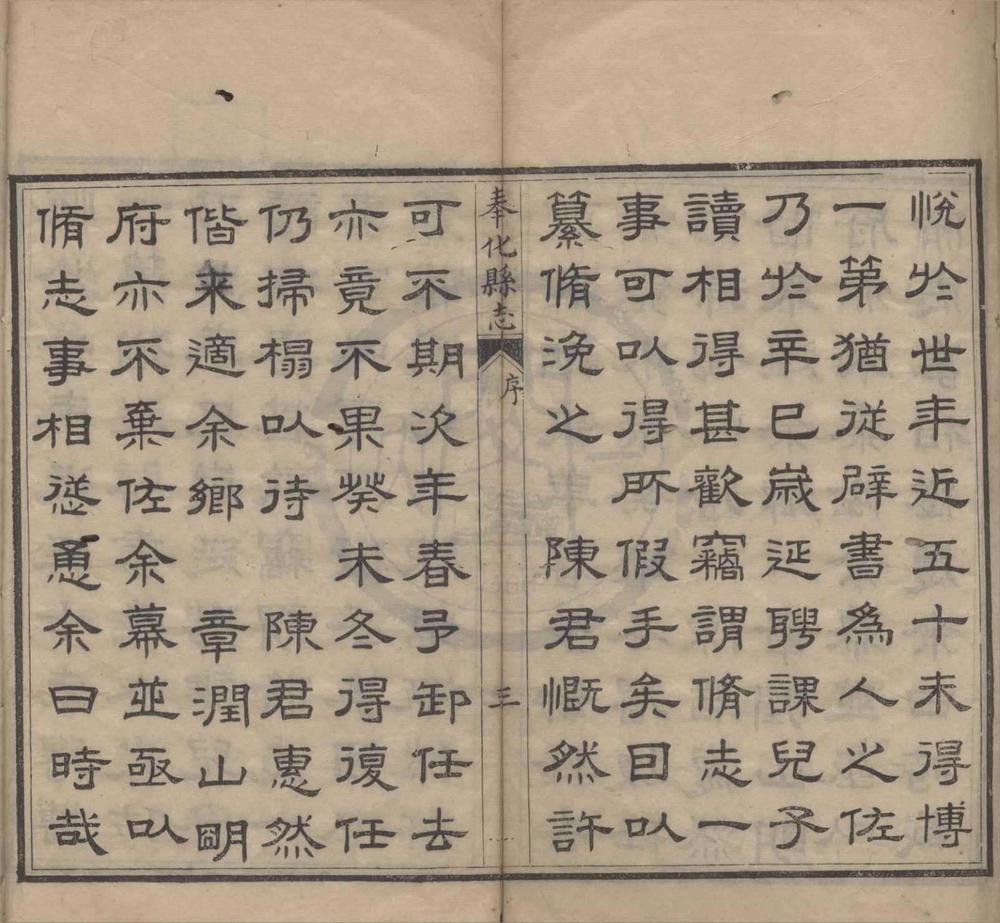 悅於世年近五十未得博
一第猶從辟書爲人之佐
乃於辛巳歲延聘課兒子
讀相得甚歡竊謂脩志一
事可以得所假手矣因以
纂脩浼之　陳君慨然許
奉化縣志
序
三
可不期次年春予卸任去
亦竟不果癸未冬得復任
仍掃榻以待　陳君惠然
偕來適余鄉　章潤山明
府亦不棄佐余幕並亟以
脩志事相慫恿余曰時哉